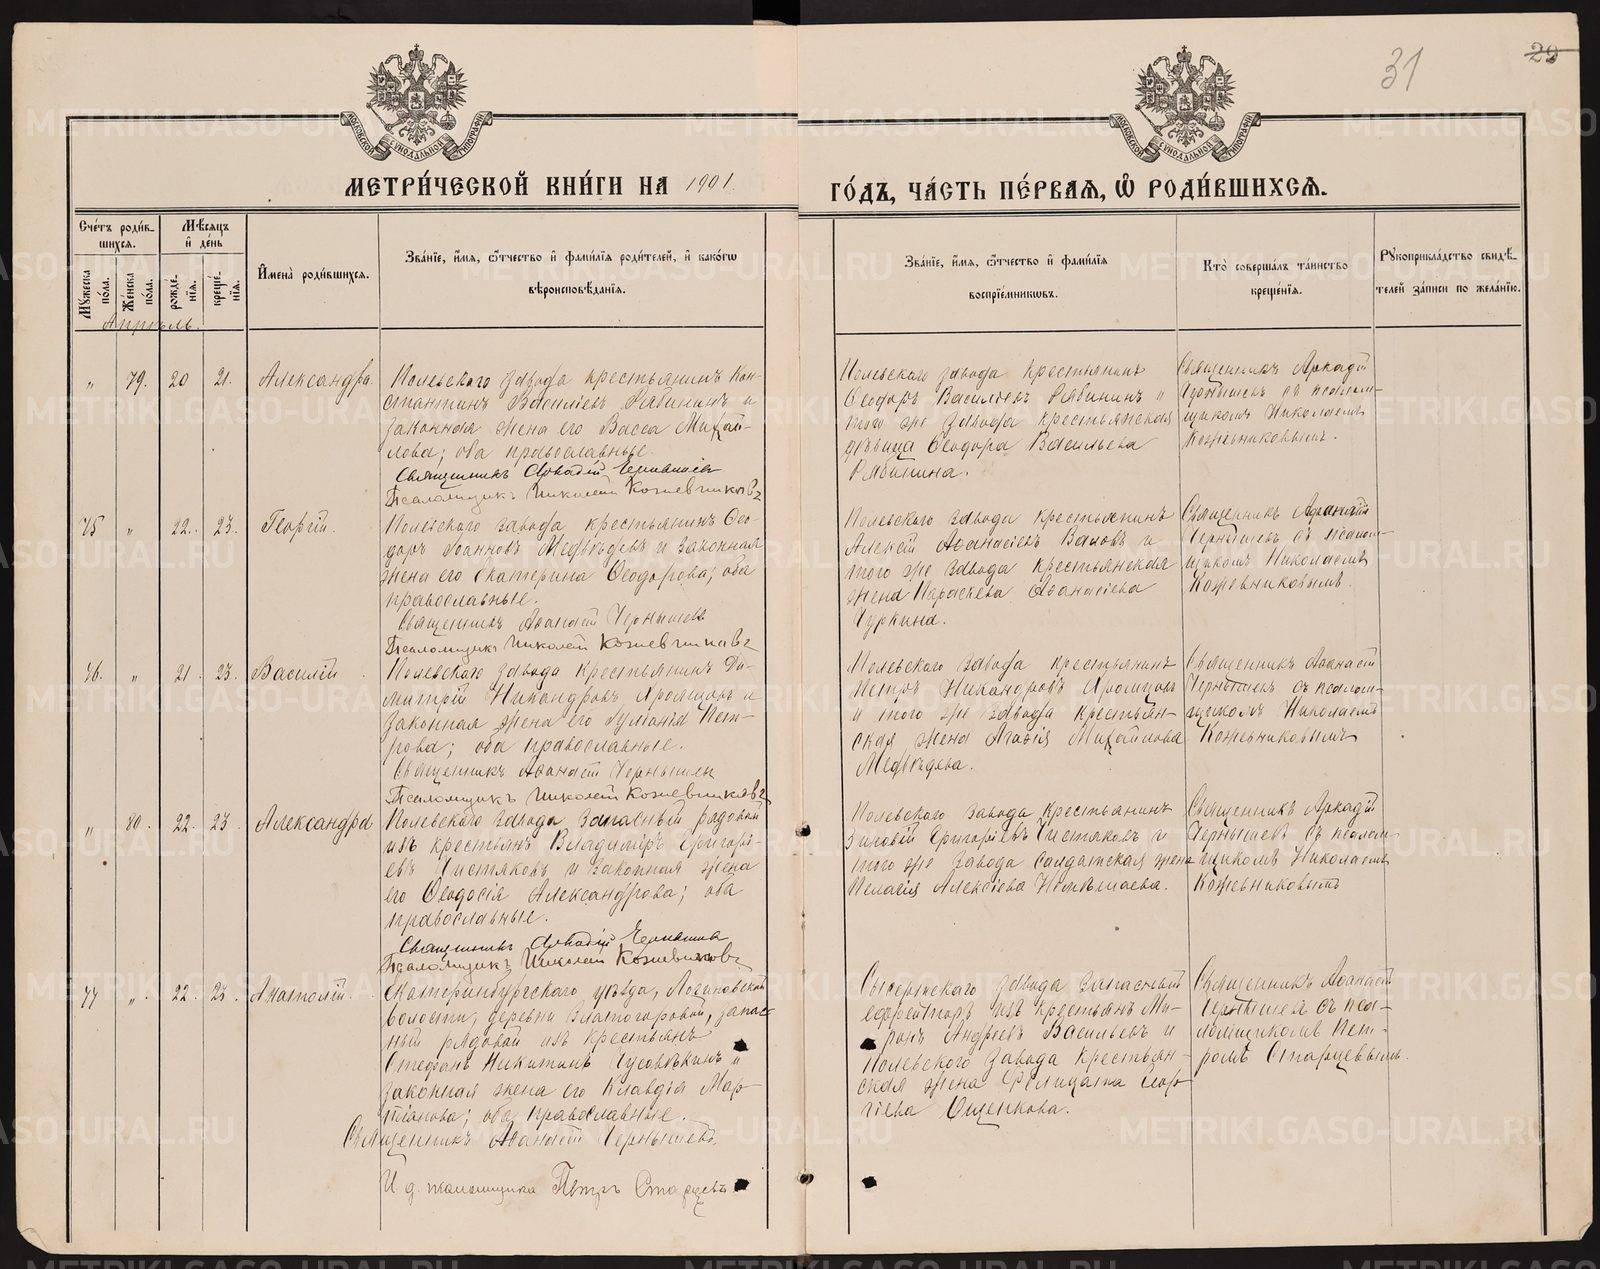 31
29
МОСКОВСКОЙ СѴНОДАЛЬНОЙ ТИПОГРАФІИ
МОСКОВСКОЙ СѴНОДАЛЬНОЙ ТИПОГРАФІИ
МЕТРИ́ЧЕСКОЙ КНИ́ГИ НА 1901.
ГО́ДЪ, ЧА́СТЬ ПЕ́РВАѦ, Ѡ҆ РОДИ́ВШИХСѦ.
Сче́тъ роди́в-
шихсѧ.
Мѣ́сѧцъ
и҆ де́нь
Мꙋ́жеска по́ла.
Же́нска по́ла.
рожде́-нїѧ.
креще́-нїѧ.
И҆мена̀ роди́вшихсѧ.
Зва́нїе, и҆́мѧ, ѻ҆́тчество и҆ фами́лїѧ роди́телей, и҆ како́гѡ
вѣроисповѣ́данїѧ.
Зва́нїе, и҆́мѧ, ѻ҆́тчество и҆ фами́лїѧ
воспрїе́мникѡвъ.
Кто̀ соверша́лъ та́инство
креще́нїѧ.
Рꙋкоприкла́дство свидѣ́-
телей за́писи по жела́нїю.
Апрѣль.
" 79. 20 21. Александра.
Полевского завода крестьянинъ Кон-
стантинъ Василіевъ Рябининъ и
законная жена его Васса Михай-
лова; оба православные.
Священникъ Аркадій Чернышевъ
Псаломщикъ Николай Кожевниковъ
Полевского завода крестьянинъ
Ѳеодоръ Василіевъ Рябининъ и
того же завода крестьянская
дѣвица Ѳеодора Васильева
Рябинина.
Священникъ Аркадій
Чернышевъ съ псалом-
щикомъ Николаемъ
Кожевниковымъ.
75 " 22. 23. Георгій.
Полевского завода крестьянинъ Ѳео-
доръ Іоанновъ Медвѣдевъ и законная
жена его Екатерина Ѳеодорова; оба
православные.
Священникъ Аѳанасій Чернышевъ
Псаломщикъ Николай Кожевниковъ
Полевского завода крестьянинъ
Алексій Аѳанасіевъ и
того же завода крестьянская
жена Параскева Аѳанасіева
Чуркина.
Священникъ Аѳанасій
Чернышевъ съ псалом-
щикомъ Николаемъ
Кожевниковымъ.
76. " 21. 23. Василій
Полевского завода крестьянинъ Ди-
митрій Никандровъ Хромцовъ и
законная жена его Іуліанія Пет-
рова; оба православные.
Священникъ Аѳанасій Чернышевъ
Псаломщикъ Николай Кожевниковъ
Полевского завода крестьянинъ
Петръ Никандровъ Хромцовъ
и того же завода крестьян-
ская жена Агаѳія Михайлова
Медвѣдева.
Священникъ Аѳанасій
Чернышевъ съ псалом-
щикомъ Николаемъ
Кожевниковымъ
" 80. 22. 23. Александра
Полевского завода запасный рядовой
изъ крестьянъ Владиміръ Григорі-
евъ Чистяковъ и законная жена
его Ѳеодосія Александрова; оба
православные.
Священникъ Аркадій Чернышевъ
Псаломщикъ Николай Кожевниковъ
Полевского завода крестьянинъ
Зиновій Григоріевъ Чистяковъ и
того же завода солдатская жена
Пелагія Алексіева
Священникъ Аркадій
Чернышевъ съ псалом-
щикомъ Николаемъ
Кожевниковымъ
77 ". 22. 23. Анатолій.
Екатеринбургскаго уѣзда,
волости, деревни Златогоровой, запас-
ный рядовой изъ крестьянъ
Стефанъ Никитинъ и
законная жена его Клавдія Мар-
тіанова; оба православные.
Священникъ Аѳанасій Чернышевъ.
И. д. псаломщика Петръ Старцевъ
Сысертскаго завода запасный
ефрейторъ изъ крестьянъ Ми-
ронъ Андреевъ Васильевъ и
Полевского завода крестьян-
ская жена Фелицата Геор-
гіева Ощепкова.
Священникъ Аѳанасій
Чернышевъ съ пса-
ломщикомъ Пет-
ромъ Старцевымъ.
METRIKI.GASO-URAL.RU